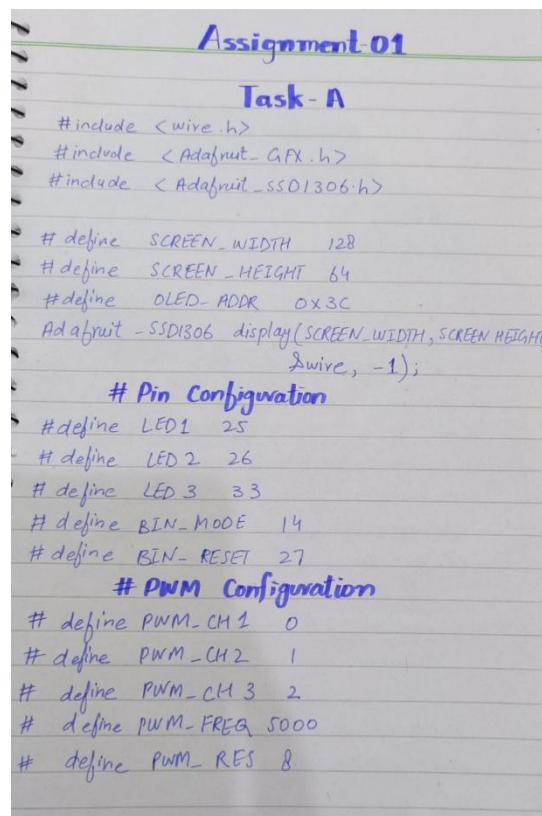 Assignment-01
Task-A
#include <wire.h>
#include <Adafruit_GFX.h>
#include <Adafruit_SSD1306.h>
#define SCREEN_WIDTH 128
#define SCREEN_HEIGHT 64
#define OLED_ADDR 0X3C
Adafruit_SSD1306 display(SCREEN_WIDTH, SCREEN HEIGHT
&wire, -1);
# Pin Configuration
#define LED1 25
#define LED2 26
#define LED3 33
#define BIN_MODE 14
#define BIN_RESET 27
# PWM Configuration
# define PWM_CH1 0
# define PWM_CH2 1
# define PWM_CH3 2
# define PWM_FREQ 5000
# define PWM_RES 8